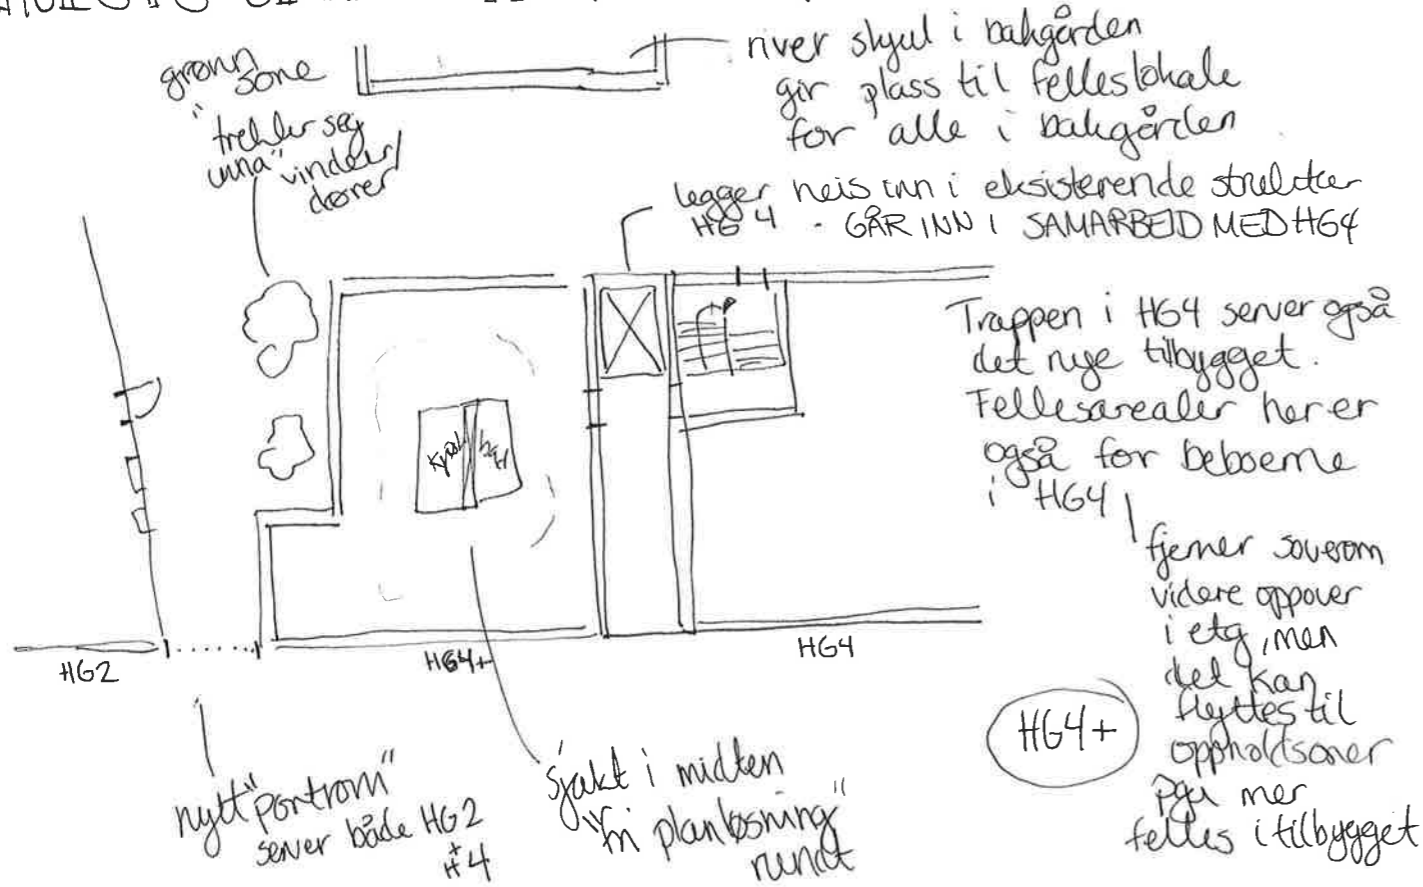 grønn
sone
"trekker seg
unna" vinduer/
dører
river skjul i bakgården
gir plass til felleslokale
for alle i bakgården
legger heis inn i eksisterende struktur
HG 4 · GÅR INN I SAMARBEID MED HG4
Trappen i HG4 server også
det nye tilbygget.
Fellesarealer her er
også for beboerne
i HG4
fjerner soverom
videre oppover
i etg, men
det kan
flyttes til
oppholdsoner
pga mer
felles i tilbygget
Kjøk
bad
HG2
HG4+
HG4
HG4+
nytt "portrom"
server både HG2
+
#4
sjakt i midten
"fri planløsning"
rundt